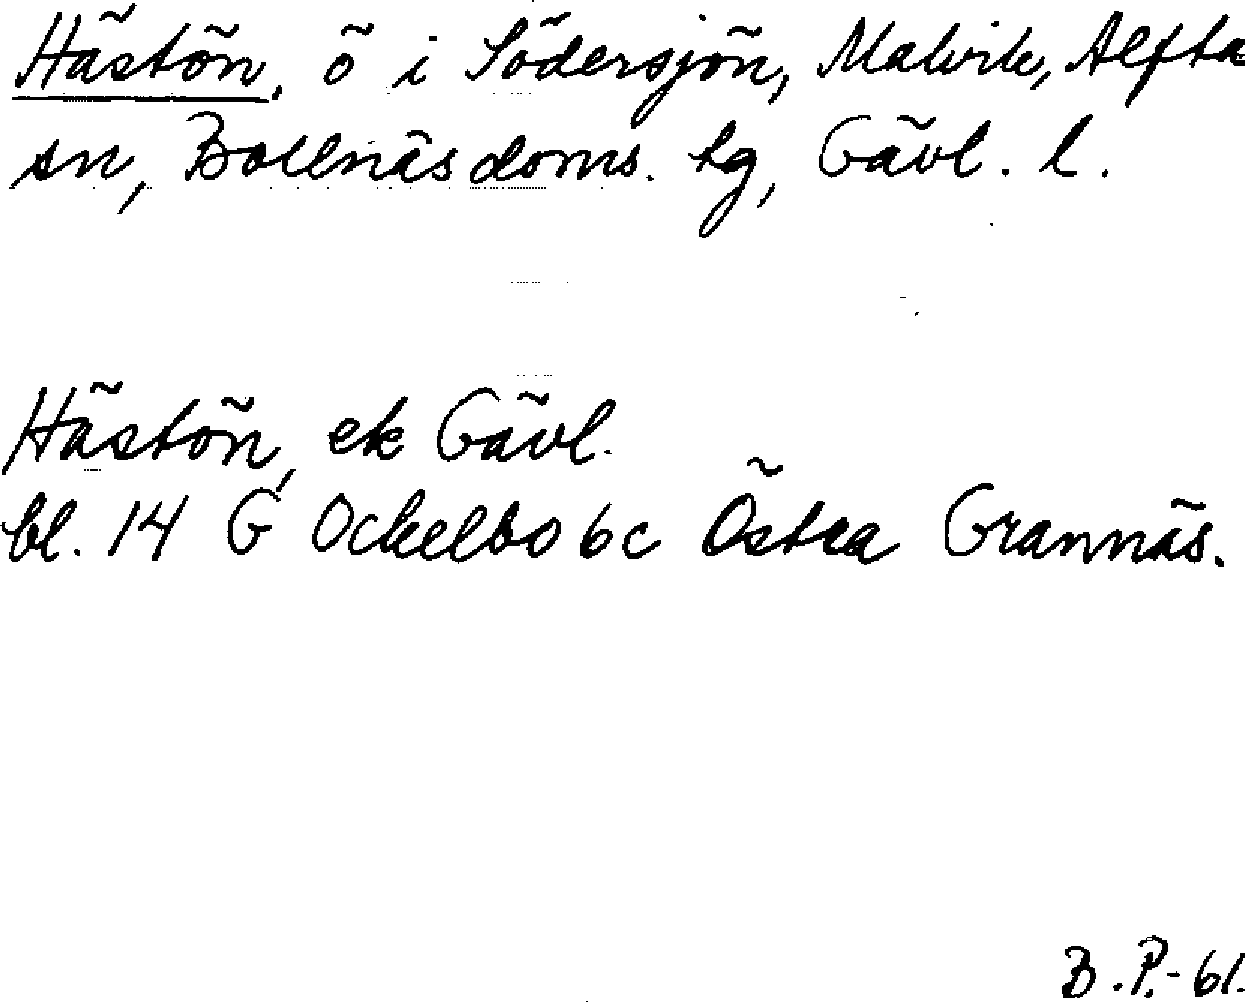 Hästön, ö i Södersjön, Malvik, Alfta
sn, Bollnäs doms. hg, Gävl. l.
Hästön, ek Gävl.
bl. 14 G Ockelbo 6c Östra Grannäs.
B.P.-61.